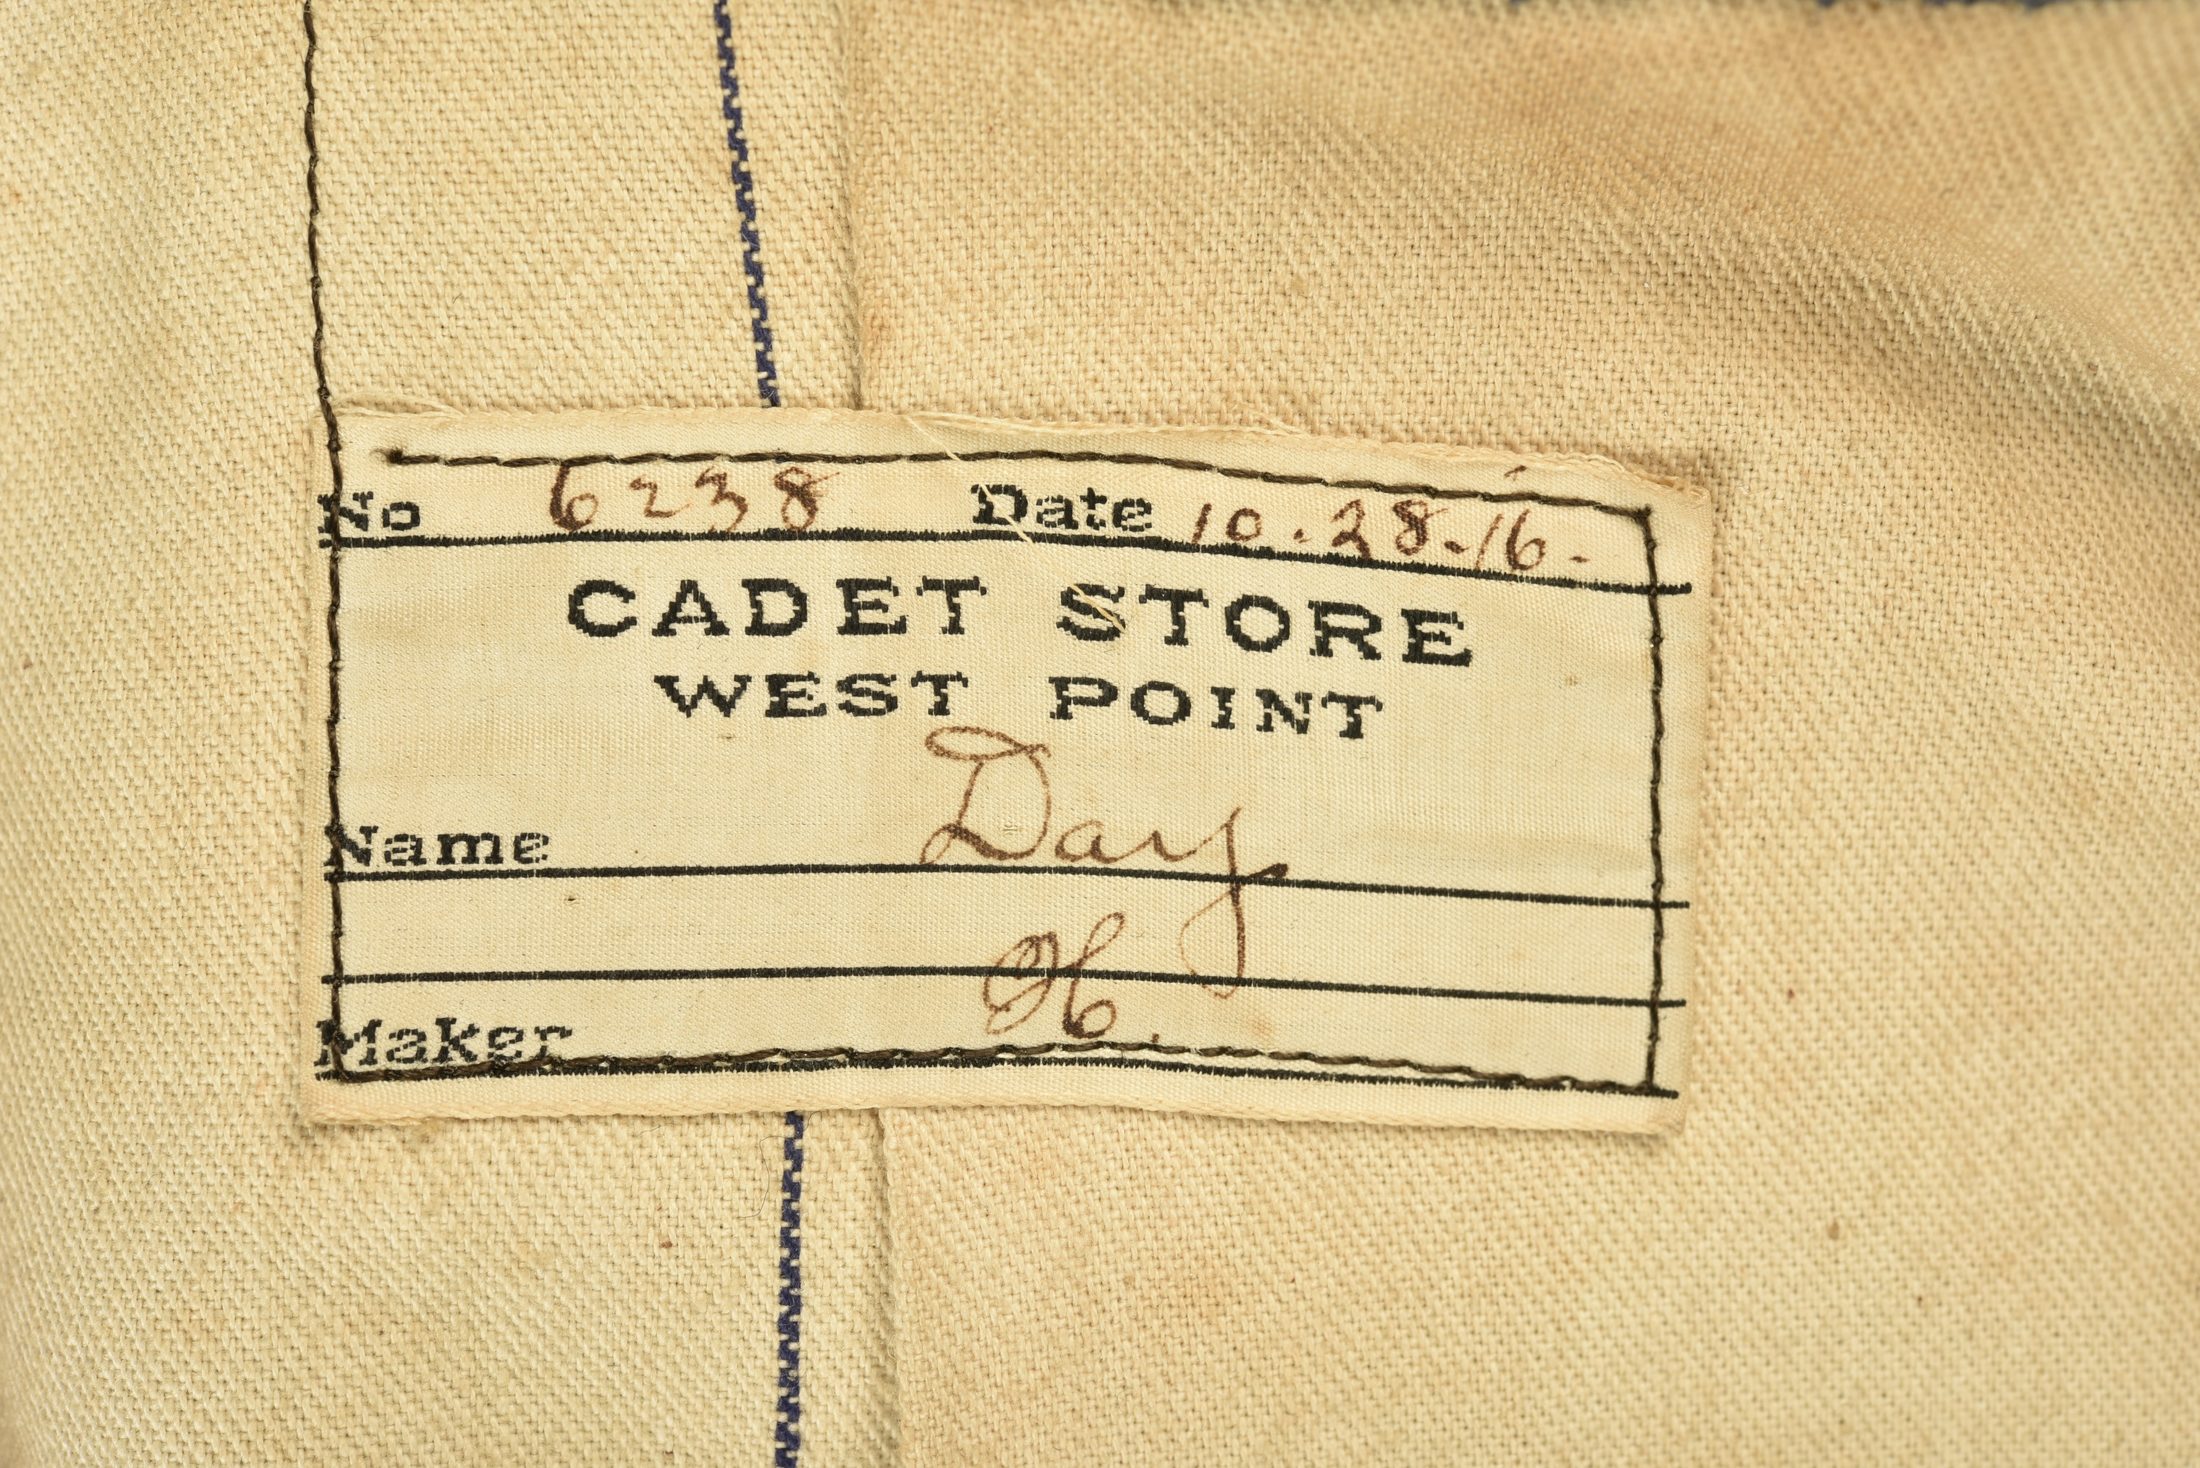 No 6238 Date 10.28.16.
CADET STORE
WEST POINT
Name Day
H.
Maker